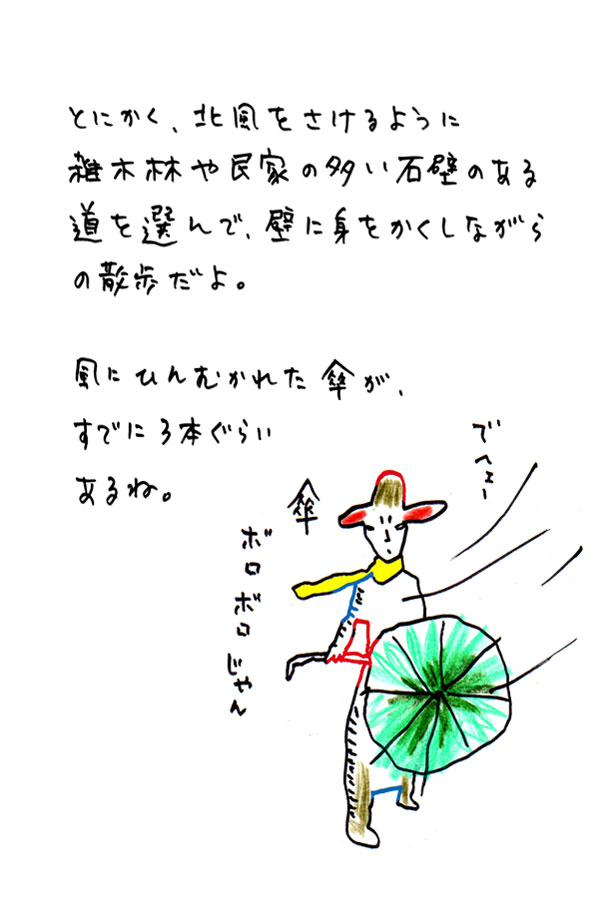 とにかく、北風をさけるように
雑木林や民家の多い石壁のある
道を選んで、壁に身をかくしながら
の散歩だよ。
風にひんむかれた傘が、
すでに3本ぐらい
あるね。
でヘェー
傘
ボロボロじゃん